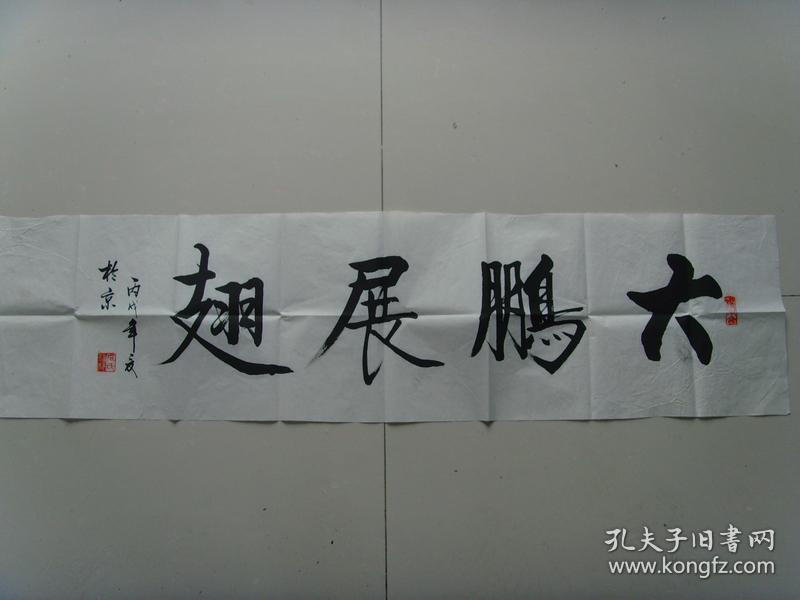 大鵬展翅
丙戌年夏
於京
孔夫子旧書网
www.kongfz.com